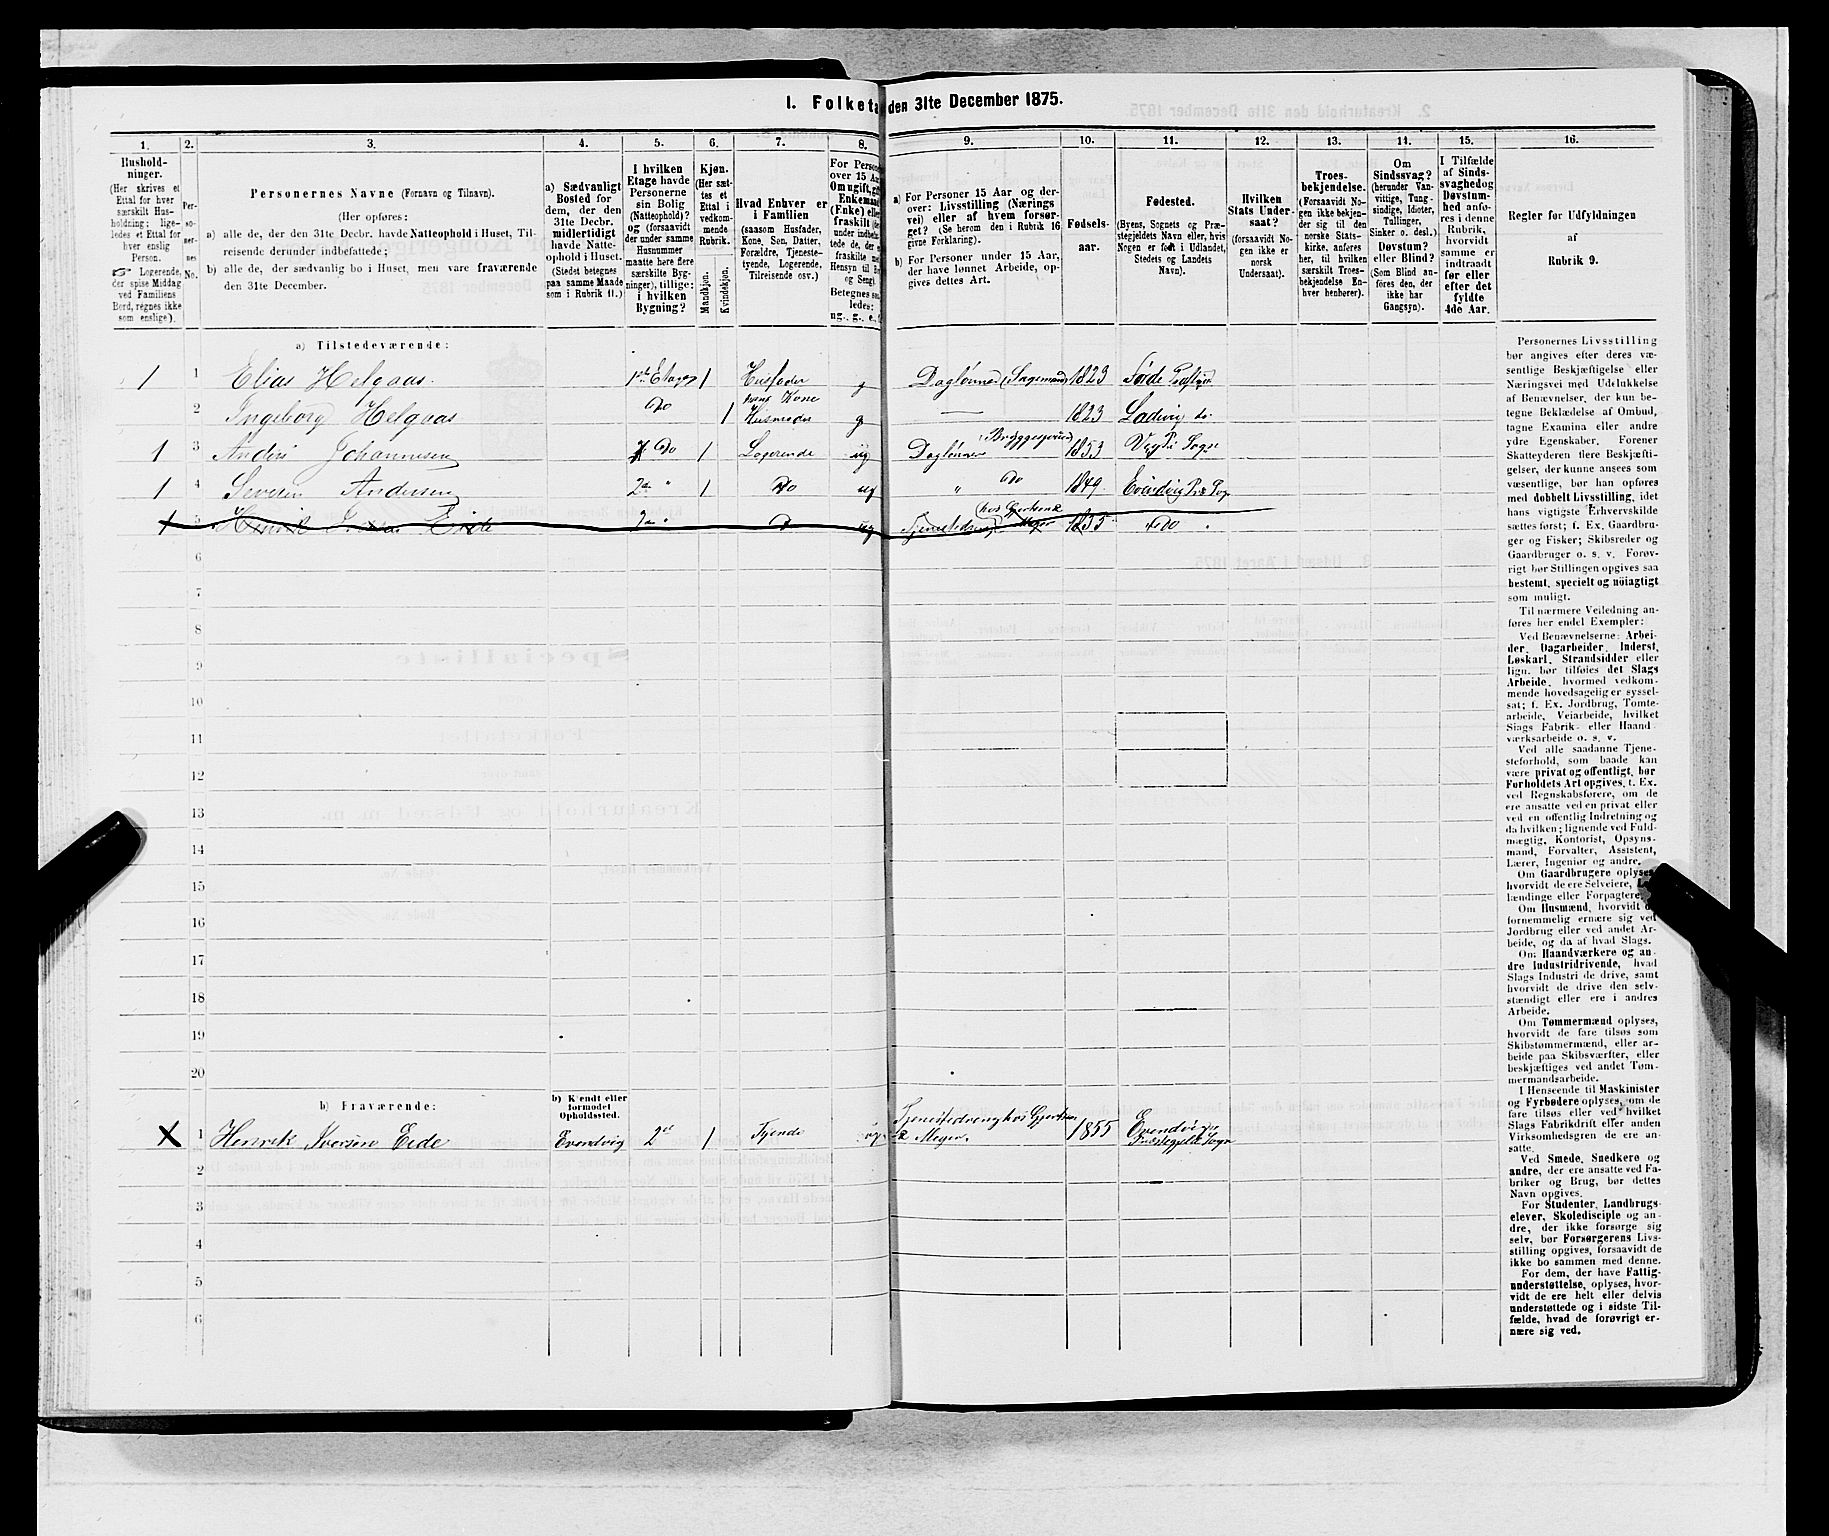 I. Folketa den 31te December 1875.
1. 2. 3. 4. 5. 6. 7. 8. 9. 10. 11. 12. 13. 14. 15. 16.
Hushold-
ninger.
(Her skrives et
Ettal for hver
særskilt Hus-
holdning; lige-
ledes et Ettal for
hver enslig
Person.
☞ Logerende,
der spise Middag
ved Familiens
Bord, regnes ikke
som enslige).
Per-
so-
ner-
nes
No.
Personernes Navne (Fornavn og Tilnavn).
(Her opføres:
a) alle de, der den 31te Decbr. havde Natteophold i Huset, Til-
reisende derunder indbefattede;
b) alle de, der sædvanlig bo i Huset, men vare fraværende
den 31te December.
a) Sædvanligt
Bosted for
dem, der den
31te Decbr.
midlertidigt
havde Natte-
ophold i Huset.
(Stedet betegnes
paa samme Maade
som i Rubrik 11.)
I hvilken
Etage havde
Personerne
sin Bolig
(Natteophold)?
og (forsaavidt
der under samme
Husnummer
maatte høre flere
særskilte Byg-
ninger), tillige:
i hvilken
Bygning?
Kjøn.
(Her sæt-
tes et
Ettal i
vedkom-
mende
Rubrik.
Mandkjøn.
Kvindekjøn.
Hvad Enhver er
i Familien
(saasom Husfader,
Kone, Søn, Datter,
Forældre, Tjeneste-
tyende, Logerende,
Tilreisende osv.)
For Person
over 15 Aa
Om ugift, gif
Enkeman
(Enke) elle
fraskilt
under indbefa
tede de, der e
fraskilte me
Hensyn til Bo
og Seng).
Betegnes saa
ledes:
ug., g., e.,
a) For Personer 15 Aar og der-
over: Livsstilling (Nærings
vei) eller af hvem forsør-
get? (Se herom den i Rubrik 16
givne Forklaring).
b) For Personer under 15 Aar,
der have lønnet Arbeide, op-
gives dettes Art.
Fødsels-
aar.
Fødested.
(Byens, Sognets og Præ-
stegjeldets Navn eller, hvis
Nogen er født i Udlandet,
Stedets og Landets
Navn).
Hvilken
Stats Under-
saat?
(forsaavidt No-
gen ikke er
norsk
Undersaat).
Troes-
bekjendelse.
(Forsaavidt No-
gen ikke bekjen-
der sig til den
norske Stats-
kirke, anføres
her, til hvilken
særskilt Troes-
bekjendelse En-
hver henhører).
Om
Sindssvag?
(herunder Van-
vittige, Tung-
sindige, Idioter,
Tullinger,
Sinker o. desl.)
Døvstum?
eller Blind?
(Som Blind an-
føres den, der
ikke har
Gangsyn).
I Tilfælde
af Sinds-
svaghed og
Døvstum-
hed anfø-
res i denne
Rubrik,
hvorvidt
samme er
indtraadt
før eller
efter det
fyldte
4de Aar.
Regler for Udfyldningen
af
Rubrik 9.
a) Tilstedeværende:
1 1 Elias Helgaas 1ste Etage 1 Husfader g Daglønner (Sagemand) 1823 Førde
2 Ingeborg Helgaas Do 1 hans Kone Husmoder g — 1823 Ladvig do.
1 3 Anders Johannesen Do 1 Logerende ug Dagløнner 1853
1 4 Severin Andersen 2den " 1 Do ug " Do 1849 Evindvig
1 5 Henrik Eide 2den " Do ug 1855 Do
6
7
8
9
10
11
12
13
14
15
16
17
18
19
20
b) Fraværende:
b) Kjendt eller
formodet
Opholdssted.
X 1 Henrik Iversen Eide Evendvig 2den 1 Tjende ug Tjenestedreng hos Gjertsen
& Meyer. 1855 Evendvigs
Præstegjeld & Sogn
2
3
4
5
6
Personernes Livsstilling
bør angives efter deres væ-
sentlige Beskjæftigelse eller
Næringsvei med Udelukkelse
af Benævnelser, der kun be-
tegne Beklædelse af Ombud,
tagne Examina eller andre
ydre Egenskaber. Forener
Skatteyderen flere Beskjæfti-
gelser, der kunne ansees som
væsentlige, bør han opføres
med dobbelt Livsstilling, idet
hans vigtigste Erhvervskilde
sættes først; f. Ex. Gaardbru-
ger og Fisker; Skibsreder og
Gaardbruger o. s. v. Forøv-
rigt bør Stillingen opgives saa
bestemt, specielt og nøiagtigt
som muligt.
Til nærmere Veiledning an-
føres her endel Exempler:
Ved Benævnelserne: Arbei-
der, Dagarbeider, Inderst,
Løskarl, Strandsidder eller
lign. bør tilføies det Slags
Arbeide, hvormed vedkom-
mende hovedsagelig er syssel-
sat; f. Ex. Jordbrug, Tomte-
arbeide, Veiarbeide, hvilket
Slags Fabrik- eller Haand-
værksarbeide o. s. v.
Ved alle saadanne Tjene-
steforhold, som baade kan
være privat og offentligt, bør
Forholdets Art opgives, f. Ex.
ved Regnskabsførere, om de
ere ansatte ved en privat eller
ved en offentlig Indretning og
da hvilken; lignende ved Fuld-
mægtig, Kontorist, Opsyns-
mand, Forvalter, Assistent,
Lærer, Ingeniør og andre.
Om Gaardbrugere oplyses,
hvorvidt de ere Selveiere, Le
lændinge eller Forpagtere.
Om Husmænd, hvorvidt d
fornemmelig ernære sig ved
Jordbrug eller ved andet Ar-
beide, og da af hvad Slags.
Om Haandværkere og an-
dre Industridrivende, hvad
Slags Industri de drive, samt
hvorvidt de drive den selv-
stændigt eller ere i andres
Arbeide.
Om Tømmermænd oplyses,
hvorvidt de fare tilsøs som
Skibstømmermænd, eller ar-
beide paa Skibsværfter, eller
beskjæftiges ved andet Tøm-
mermandsarbeide.
I Henseende til Maskinister
og Fyrbødere oplyses, om de
fare tilsøs eller ved hvilket
Slags Fabrikdrift eller anden
Virksomhedsgren de ere an-
satte.
Ved Smede, Snedkere og
andre, der ere ansatte ved Fa-
briker og Brug, bør dettes
Navn opgives.
For Studenter, Landbrugs-
elever, Skoledisciple og an-
dre, der ikke forsørge sig
selv, bør Forsørgerens Livs-
stilling opgives, forsaavidt de
ikke bo sammen med denne.
For dem, der have Fattig-
understøttelse, oplyses, hvor-
vidt de ere helt eller delvis
understøttede og i sidste Til-
fælde, hvad de forøvrigt er-
nære sig ved.